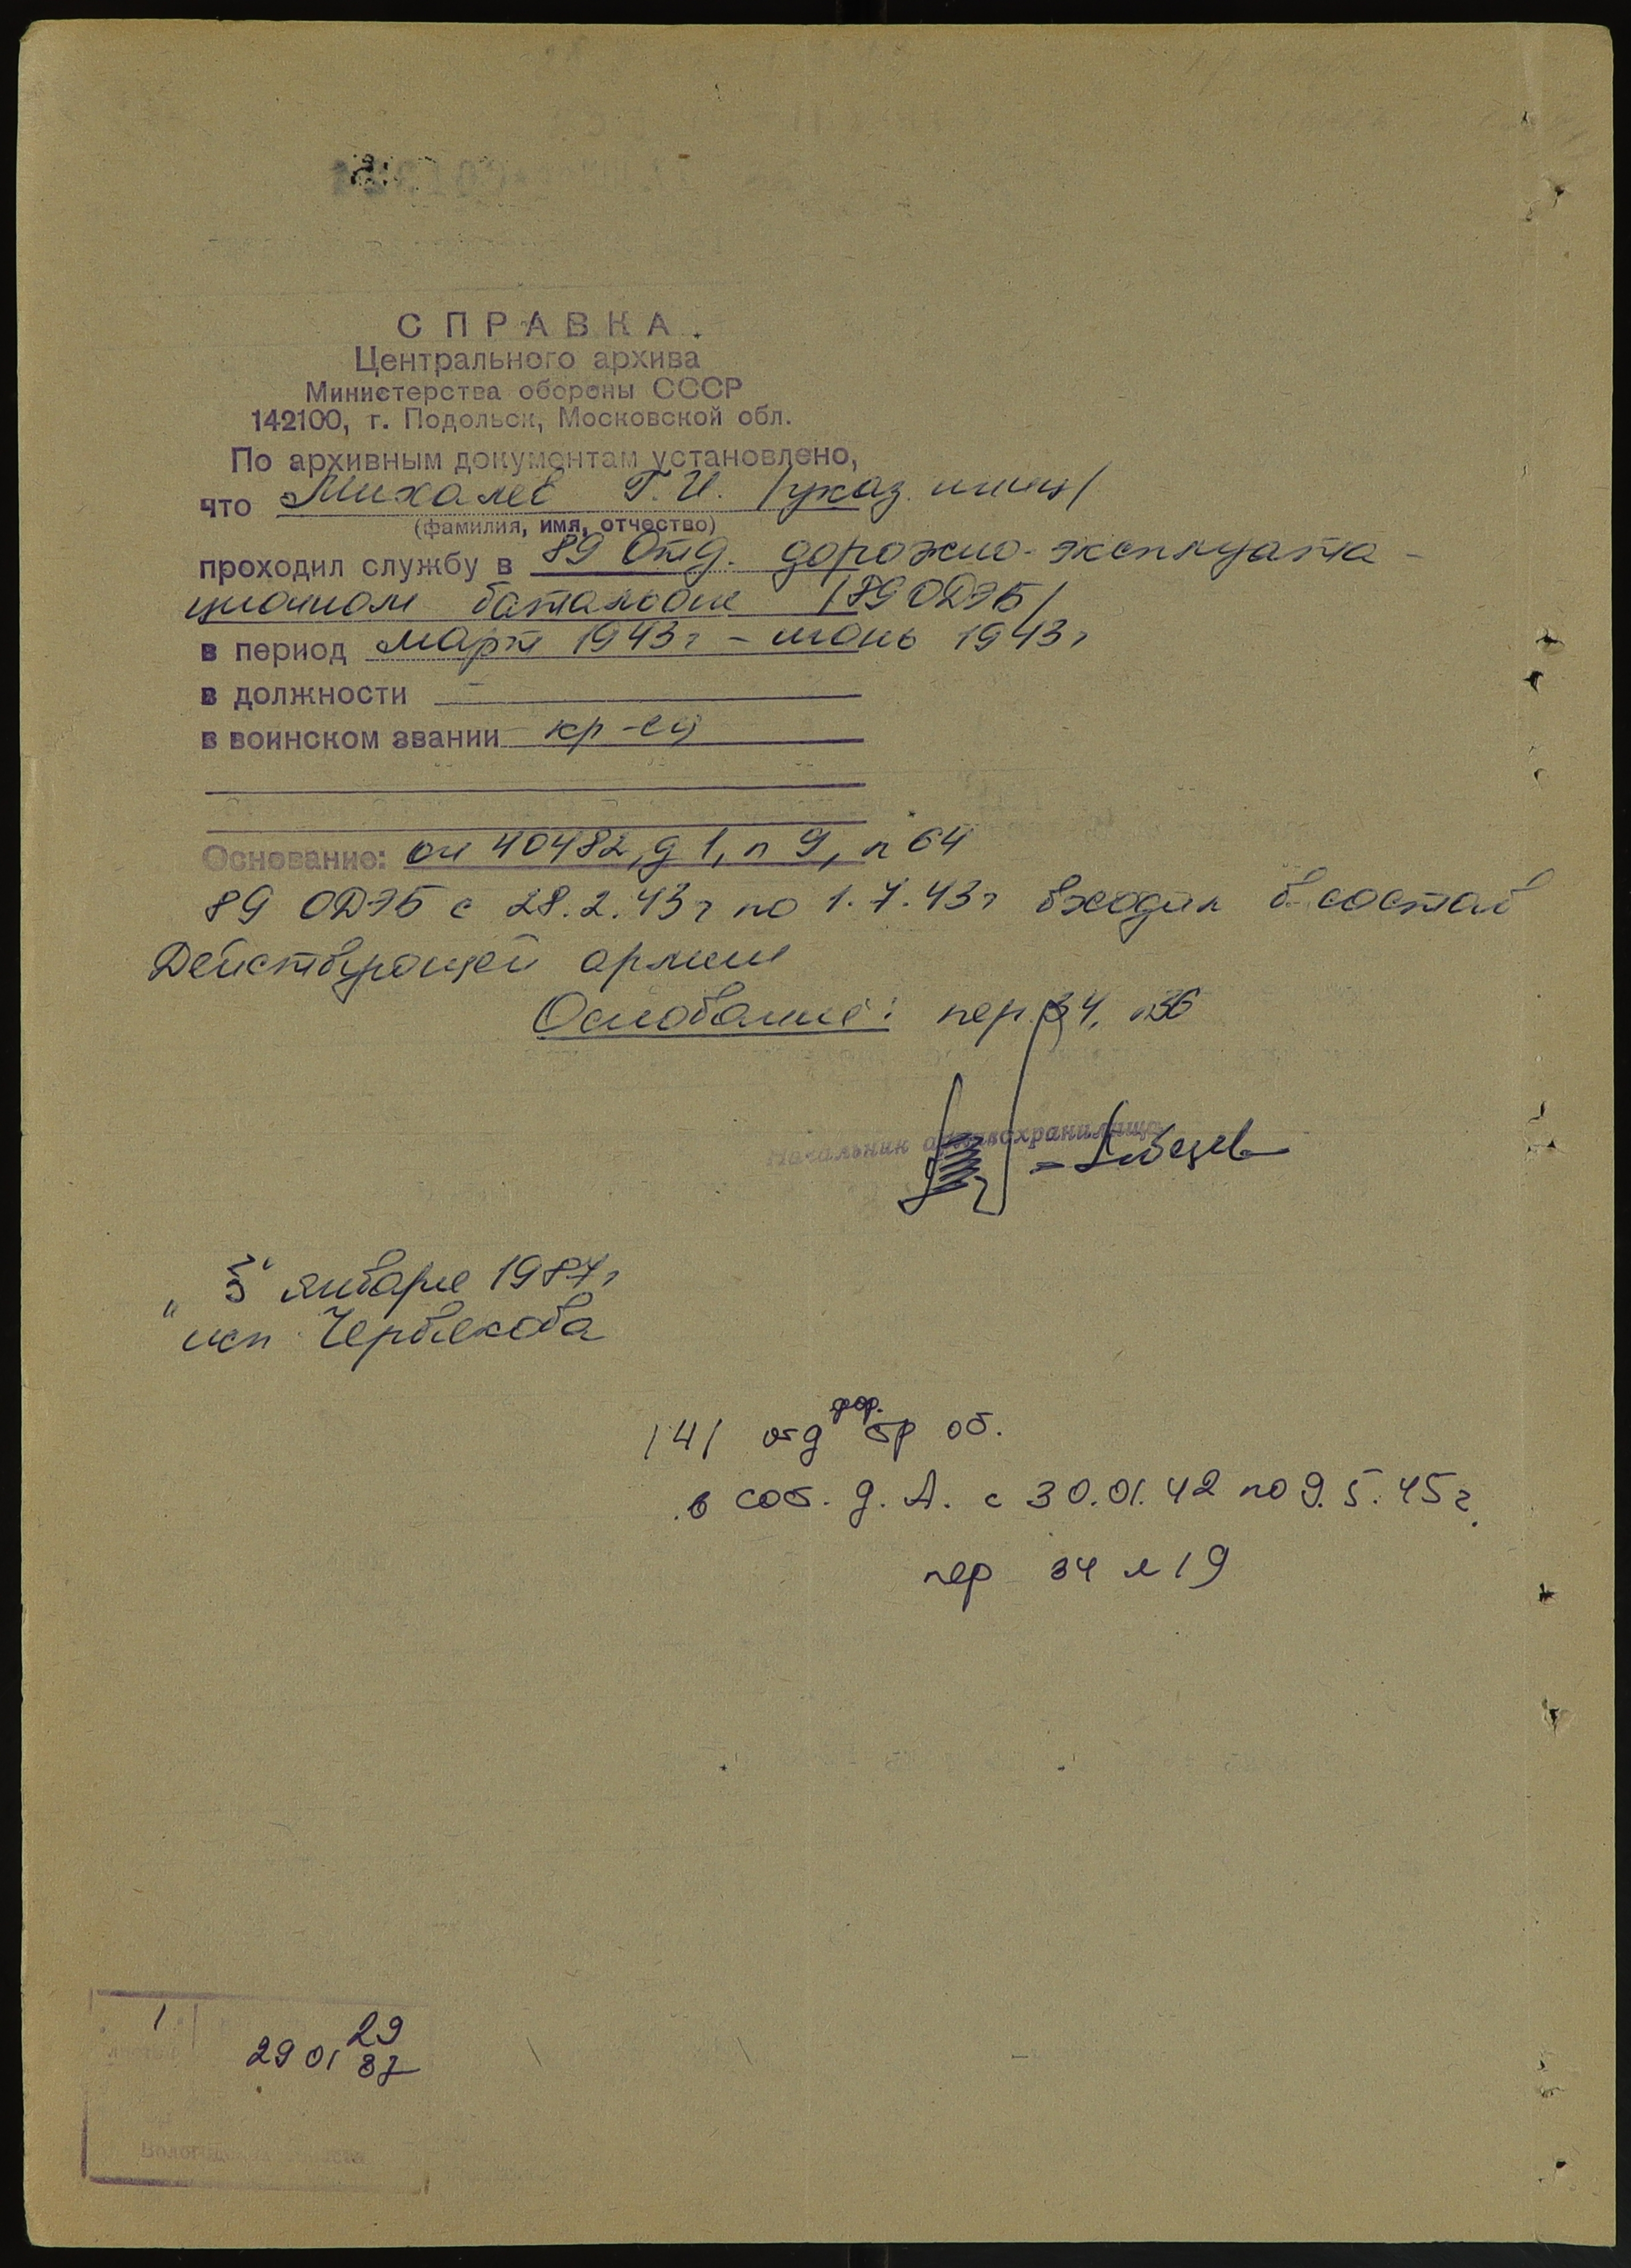 СПРАВКА.
Центрального архива
Министерства обороны СССР
142100, г. Подольск, Московской обл.
По архивным документам установлено,
что Михалев Г.И. /указ. иниц/
(фамилия, имя, отчество)
проходил службу в 89 Отд. дорожно-эксплуата-
ционном батальоне /89 ОДЭБ/
в период март 1943г – июнь 1943г
в должности –
в воинском звании кр-ец
Основание: оп 40482, д 1, п 9, л 64
89 ОДЭБ с 28.2.43г по 1.7.43г входил в состав
Действующей армии
Основание: пер. 34, л36
Начальник архивохранилища
января 1987г
исп. Червякова
дор.
141 отд бр об.
в сос. д. А. с 30.01.42 по 9.5.45г.
пер 34 л 19
1
29
29 01 87